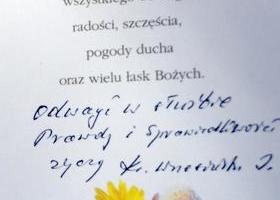 wszystkiego
radości, szczęścia,
pogody ducha
oraz wielu łask Bożych.
odwagi w służbie
Prawdy i Sprawiedliwości
życzy Ks.